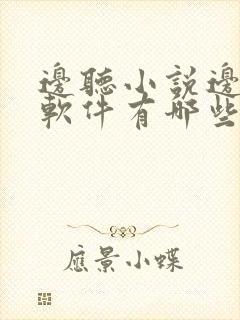 邊聽小説邊
軟件有哪些
應景小蝶